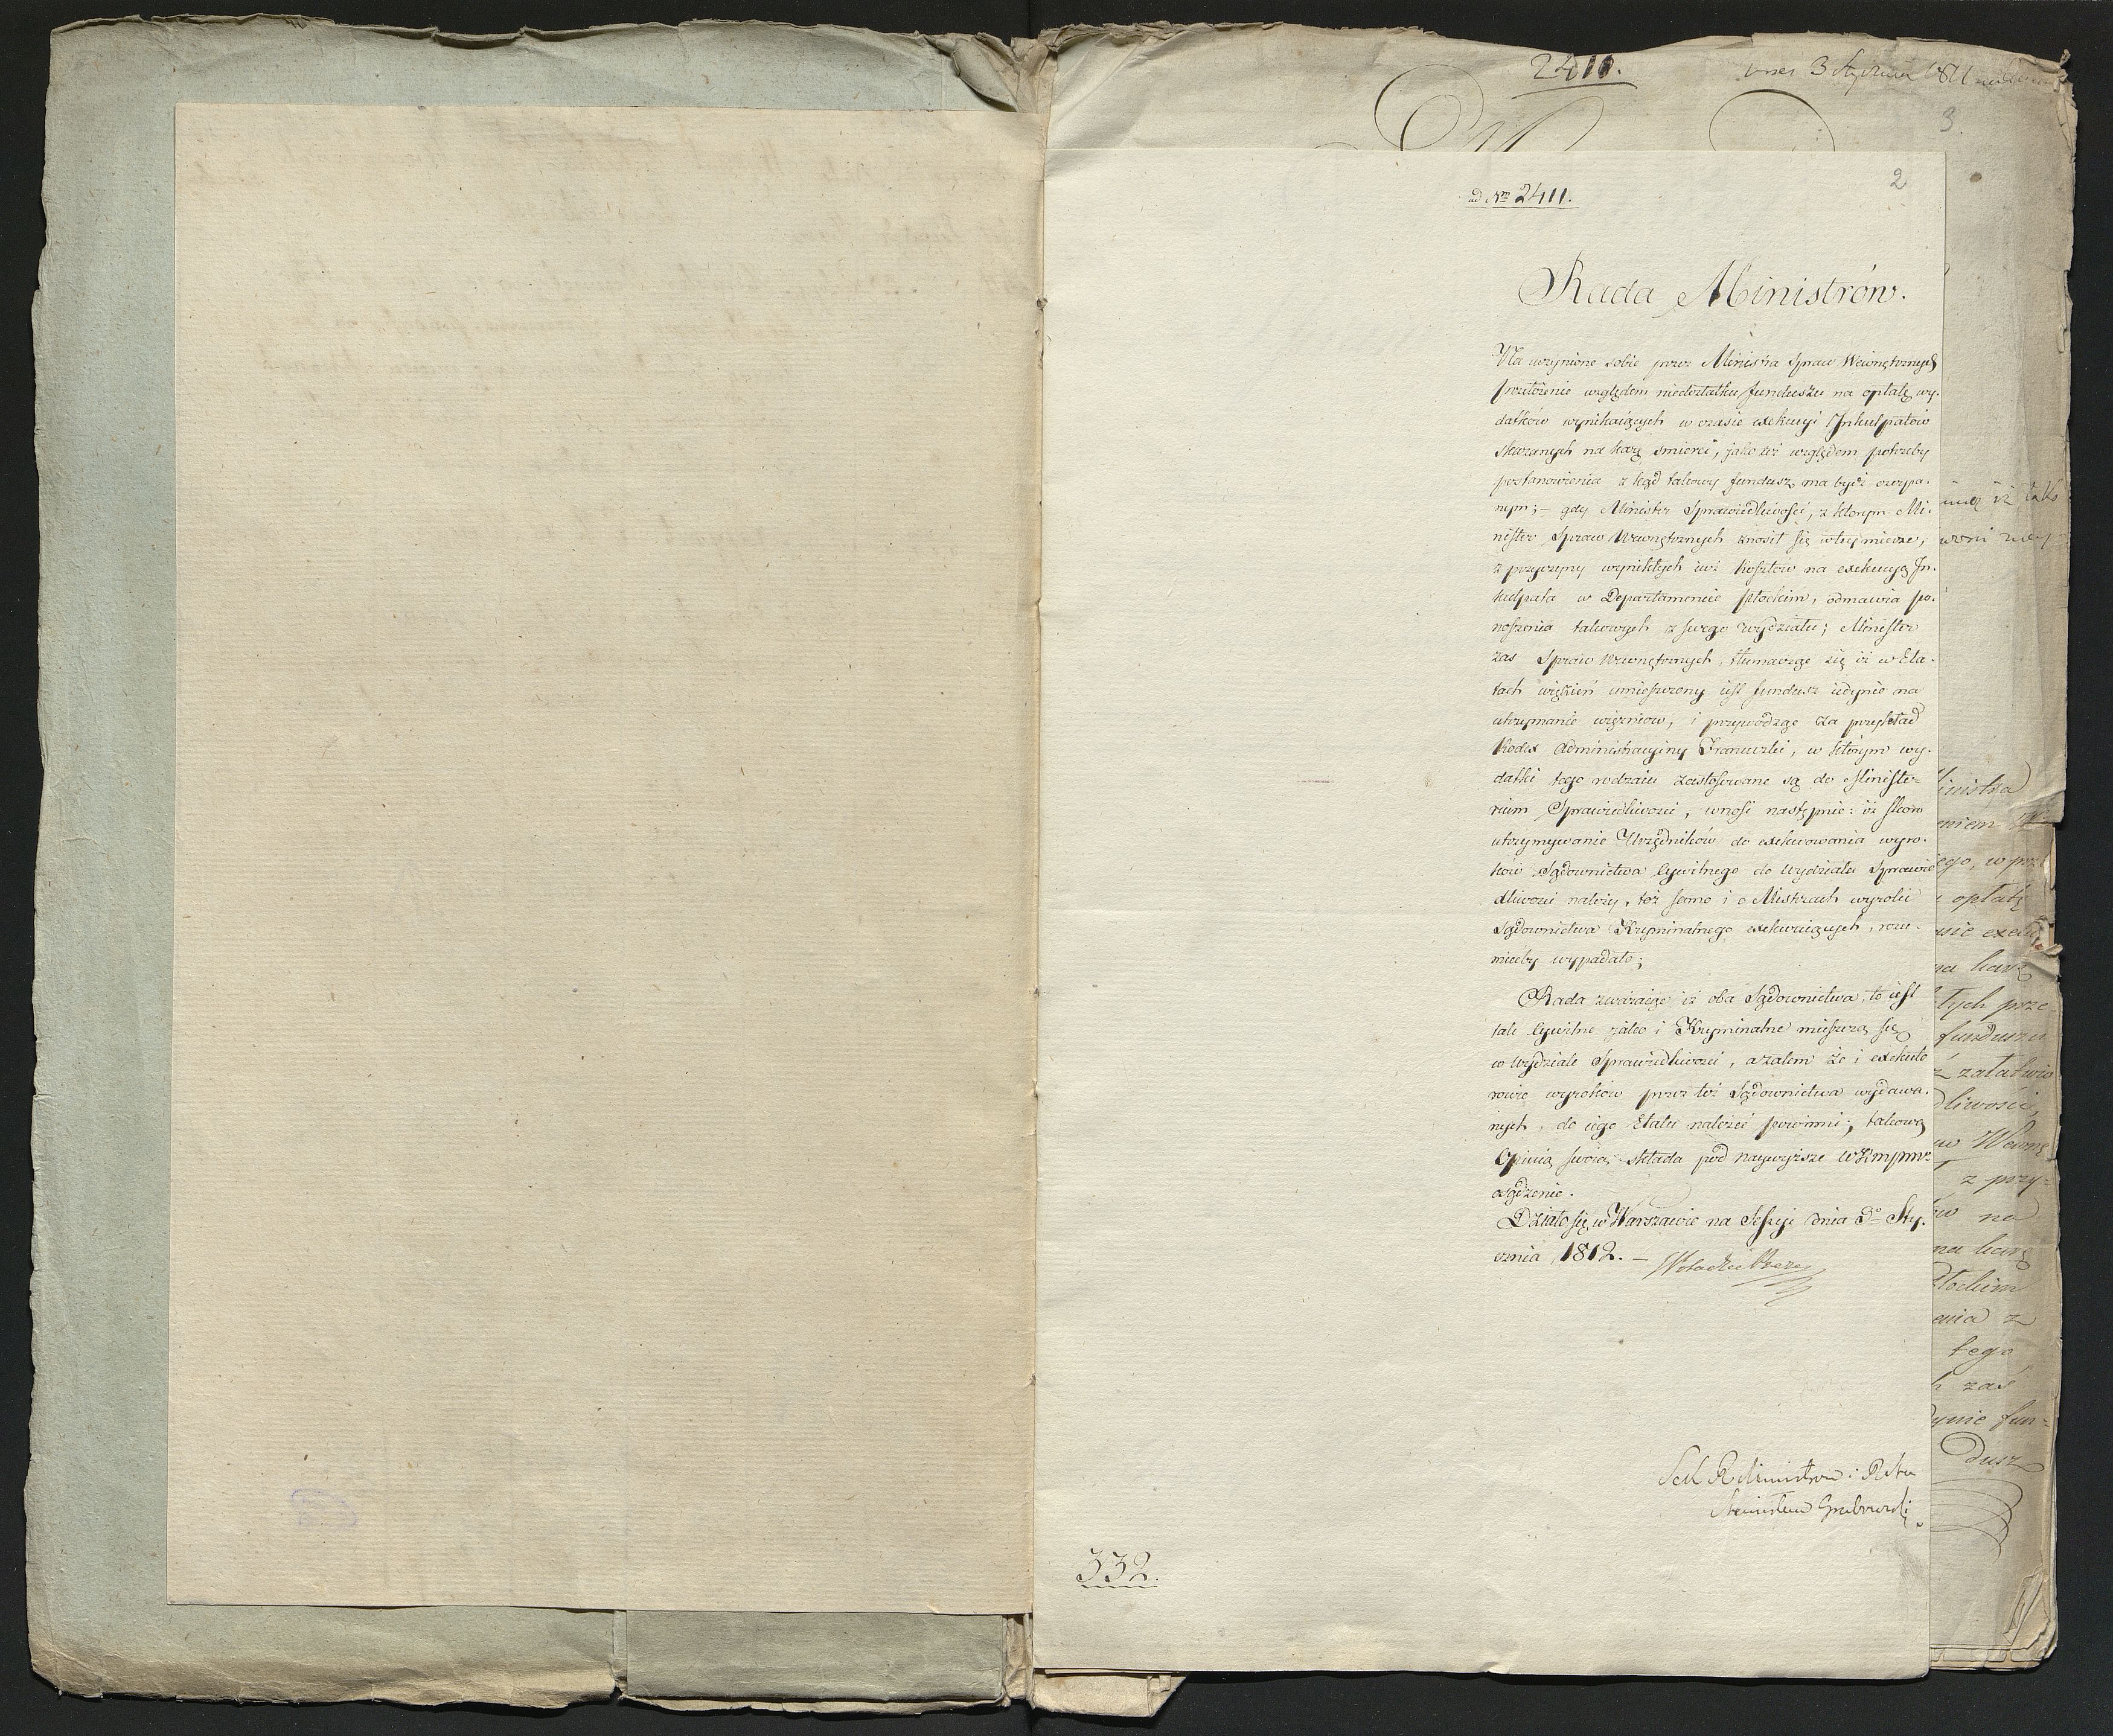 2411.
3 Stycznia 1811
3
2
ad Nrm 2411.
Rada Ministrów.
Na uczynione sobie przez Ministra Spraw Wewnętrznych
przełożenie względem niedostatku funduszu na opłatę wy-
datków wynikaiących w czasie exekucyi Inkulpatów
skazanych na karę śmierci, jako też względem potrzeby
postanowienia z kąd takowy fundusz ma bydź czerpa-
nym; – gdy Minister Sprawiedliwości, z którym Mi-
nister Spraw Wewnętrznych znosił się w tey mierze,
z przyczyny wynikłych iuż kosztów na exekucyą In-
kulpata w Departamencie Płockim, odmawia po-
noszenia takowych z swego Wydziału; Minister
zaś Spraw Wewnętrznych, tłumacząc się iż w Eta-
tach więzień umieszczony iest fundusz iedynie na
utrzymanie więzniów, i przywodząc za przykład
Kodex Administracyiny Francuzki, w którym wy-
datki tego rodzaiu zastosowane są do Ministe-
rium Sprawiedliwości, wnosi następnie: iż skoro
utrzymywanie Urzędników do exekwowania wyro-
ków Sądownictwa Cywilnego do Wydziału Sprawie
dliwości należy, toż samo i o Mistrzach wyroki
Sądownictwa Kryminalnego exekwuiących, rozu-
miećby wypadało;
Rada zważaiąc iż oba Sądownictwa, to iest
tak Cywilne jako i Kryminalne mieszczą się
w Wydziale Sprawiedliwości, a zatem że i exekuto
rowie wyroków przez też Sądownictwa wydawa-
nych, do iego Etatu należeć powinni; takową
Opinią swoią składa pod naywyższe W.K.mpmr
osądzenie.
Działo się w Warszawie na Sessyi dnia 3o Sty-
cznia 1812. –
Sek R Ministrow i Refer
Stanisław Grabowski
332.
iż tak
Ministra
niem
ego, w prz
opłatę
na karę
tych prze
funduszu
załatwie
dliwości,
w Wewnę
z przy-
w na
na karę
Płockim
enia z
tego
h zaś
dynie fun-
dusz